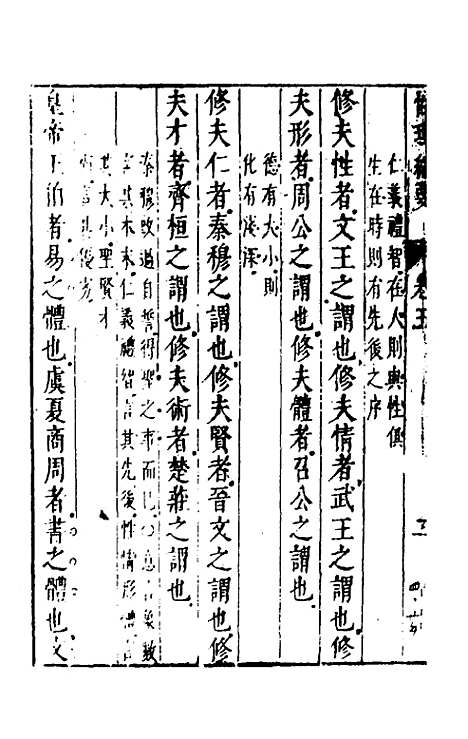 卷五
仁義禮智在人則與性俱
生在時則有先後之序
修夫性者文王之謂也修夫情者武王之謂也修
夫形者周公之謂也修夫體者召公之謂也
德有大小則
化有淺深
修夫仁者秦穆之謂也修夫賢者晉文之謂也修
夫才者齊桓之謂也修夫術者楚莊之謂也
秦穆改過自誓得聖之事而已意言象數
言其本末仁義禮智言其先後性情形體言
其大小聖賢才
術言其優劣
皇帝王伯者易之體也虞夏商周者書之體也文